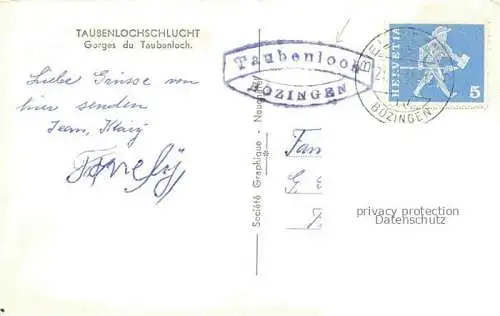 TAUBENLOCHSCHLUCHT
Gorges du Taubenloch.
Liebe Grüsse von
hier senden
Société Graphique - Neuchâtel
Taubenloch
BÖZINGEN
HELVETIA
5
BÖZINGEN
Fam
G. S
privacy protection
Datenschutz